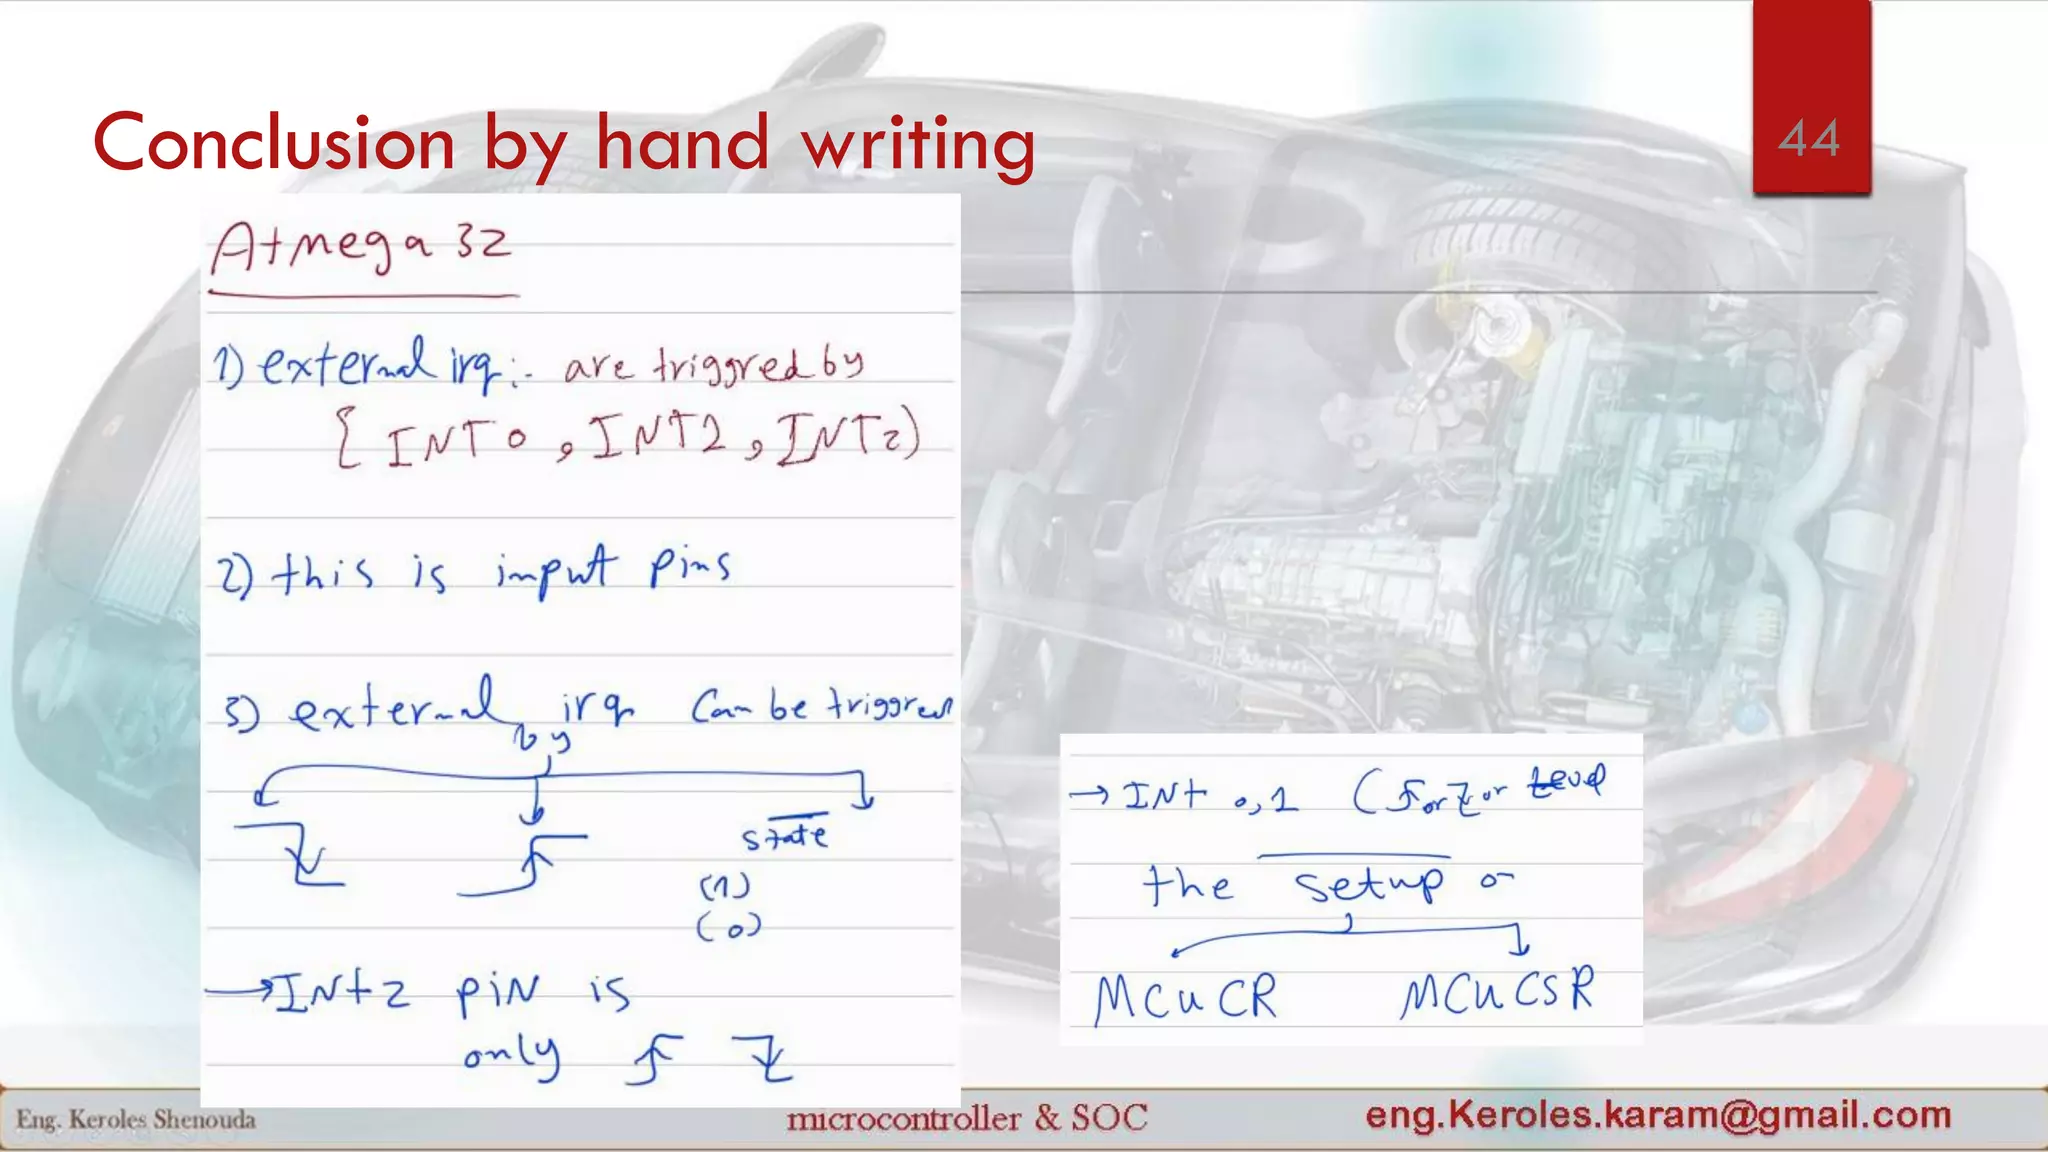 Conclusion by hand writing
44
Atmega 32
1) external irq:- are triggred by
{ INT0 , INT1 , INT2)
2) this is input pins
3) external irq can be triggred
by
state
(1)
(0)
→ INt2 pin is
only
→ INt 0,1 ( or or Level
the setup on
MCUCR MCUCSR
Eng. Keroles Shenouda
microcontroller & SOC
eng.Keroles.karam@gmail.com